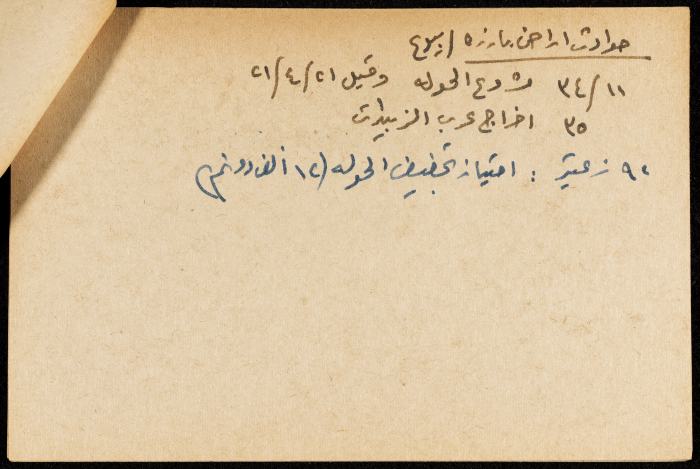 حوادث اراضي بارزه / بيوع
٣٤/١١ مشروع الحوله وقيل ٢١/٤/٢١
٣٥ اخراج عرب الزبيدات
٩٠ زعيتر : امتياز تجفيف الحوله (١٢ ألف دونم)